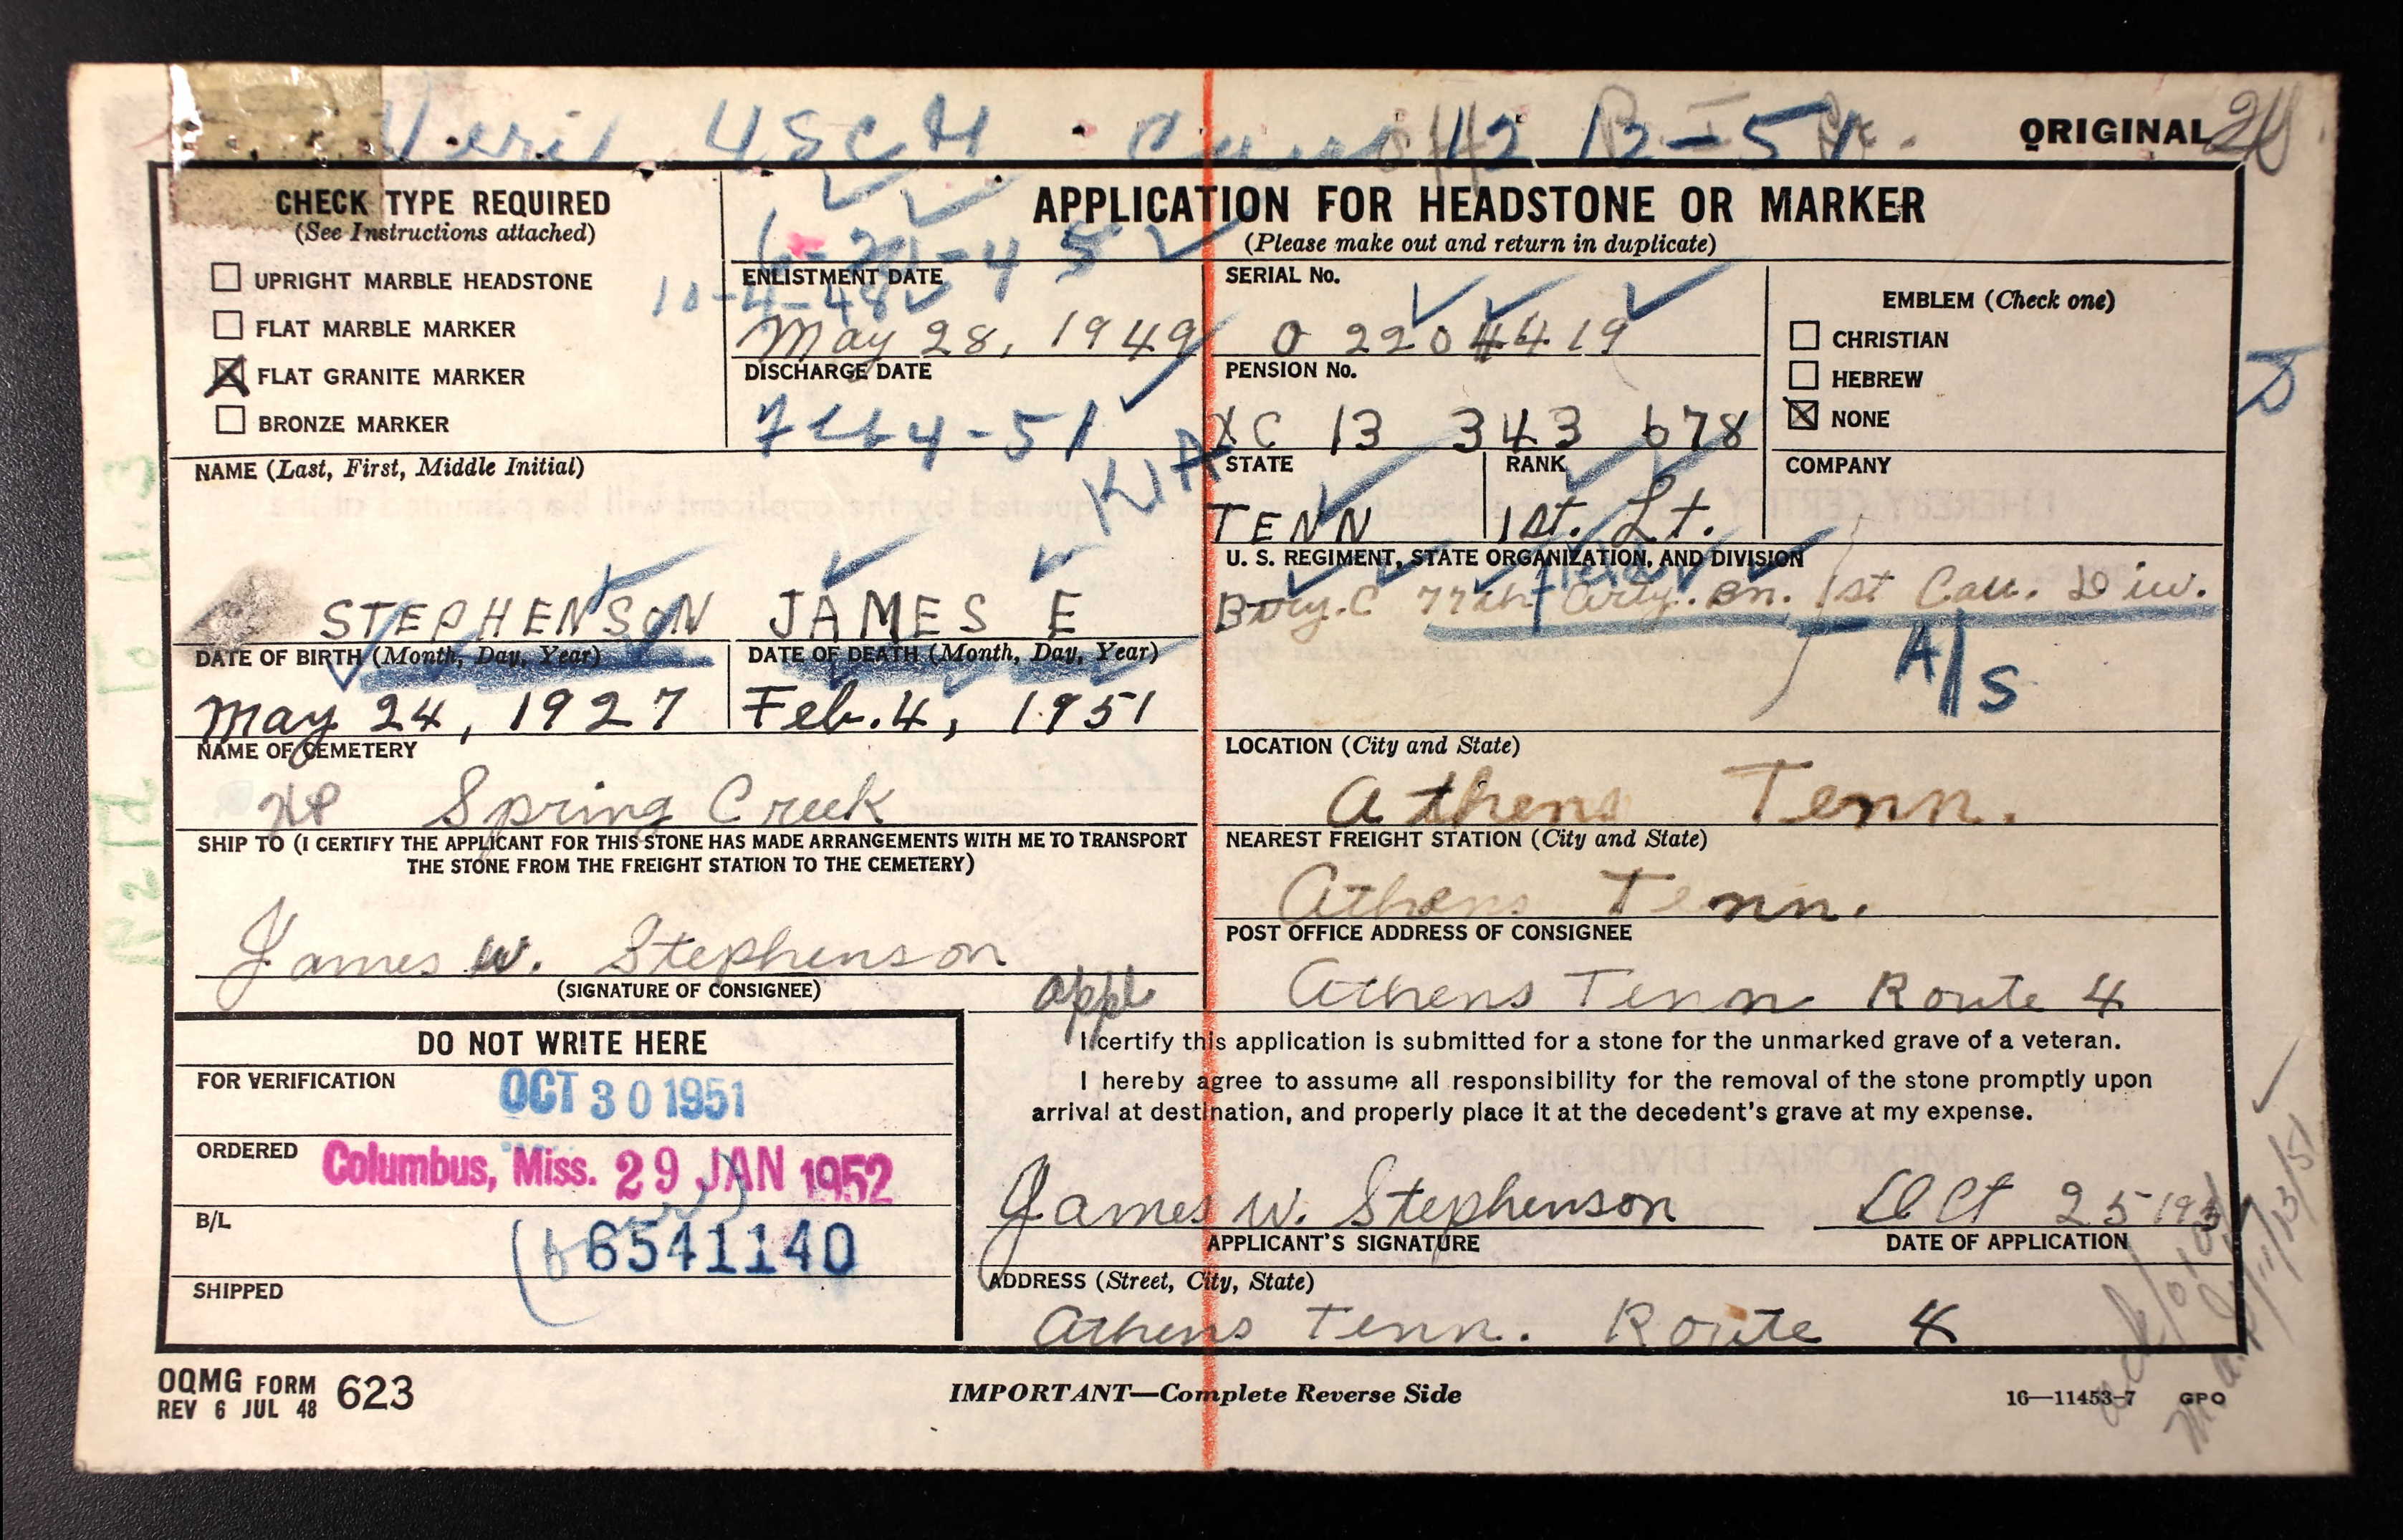 ORIGINAL
CHECK TYPE REQUIRED
(See Instructions attached)
UPRIGHT MARBLE HEADSTONE
FLAT MARBLE MARKER
FLAT GRANITE MARKER
BRONZE MARKER
APPLICATION FOR HEADSTONE OR MARKER
(Please make out and return in duplicate)
ENLISTMENT DATE
10-4-48
May 28, 1949
SERIAL No.
O 2204419
EMBLEM (Check one)
CHRISTIAN
HEBREW
NONE
DISCHARGE DATE
4-51
KIA
PENSION No.
XC 13 343 678
NAME (Last, First, Middle Initial)
STEPHENSON JAMES E
STATE
TENN
RANK
1st. Lt.
COMPANY
U. S. REGIMENT, STATE ORGANIZATION, AND DIVISION
Btry. C 77th Field Arty. Bn. 1st Cav. Div.
A/S
DATE OF BIRTH (Month, Day, Year)
May 24, 1927
DATE OF DEATH (Month, Day, Year)
Feb. 4, 1951
NAME OF CEMETERY
Spring Creek
LOCATION (City and State)
Athens Tenn.
SHIP TO (I CERTIFY THE APPLICANT FOR THIS STONE HAS MADE ARRANGEMENTS WITH ME TO TRANSPORT
THE STONE FROM THE FREIGHT STATION TO THE CEMETERY)
James W. Stephenson
(SIGNATURE OF CONSIGNEE)
NEAREST FREIGHT STATION (City and State)
Athens Tenn.
POST OFFICE ADDRESS OF CONSIGNEE
appl
Athens Tenn Route 4
DO NOT WRITE HERE
FOR VERIFICATION
OCT 30 1951
ORDERED
Columbus, Miss. 29 JAN 1952
B/L
6541140
SHIPPED
I certify this application is submitted for a stone for the unmarked grave of a veteran.
I hereby agree to assume all responsibility for the removal of the stone promptly upon
arrival at destination, and properly place it at the decedent's grave at my expense.
James W. Stephenson
APPLICANT'S SIGNATURE
Oct 25
DATE OF APPLICATION
ADDRESS (Street, City, State)
Athens Tenn. Route 4
OQMG FORM 623
REV 6 JUL 48
IMPORTANT—Complete Reverse Side
16—11453-7 GPO